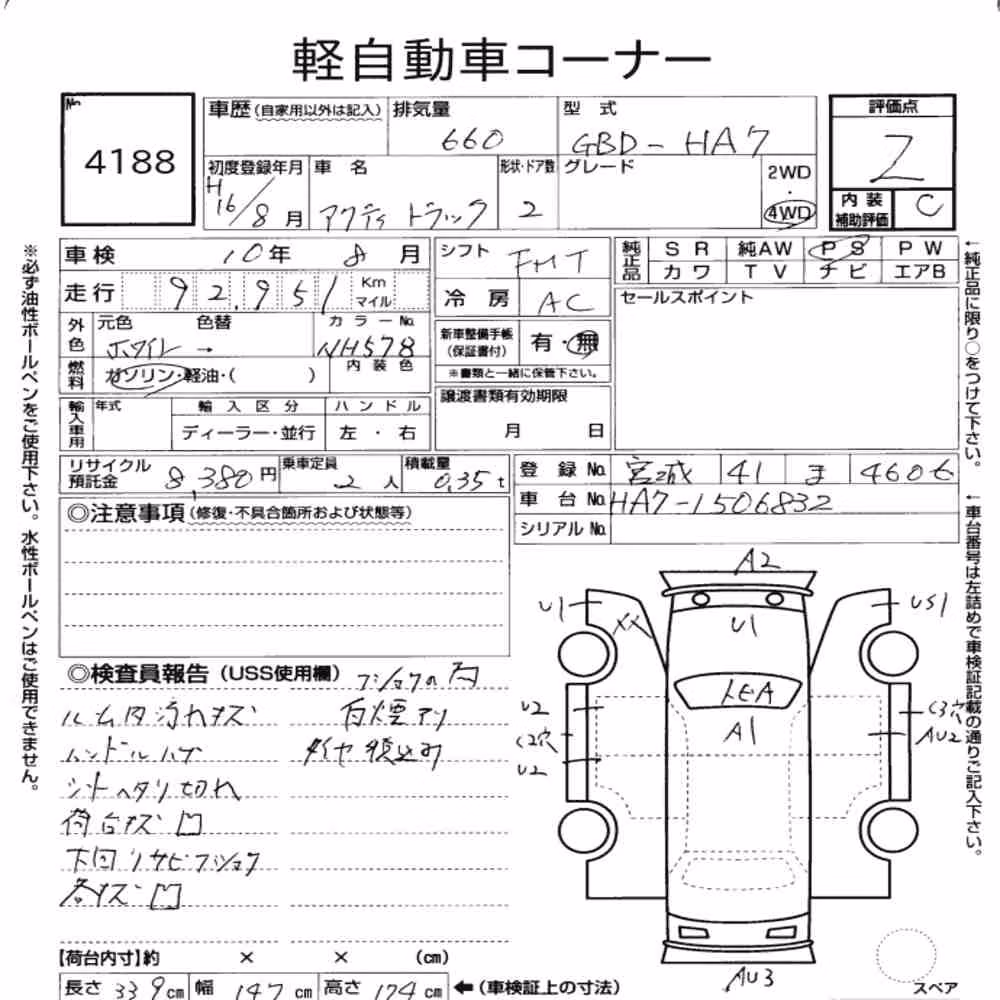 軽自動車コーナー
No. 4188
車歴(自家用以外は記入)
排気量 660
型式 GBD-HA7
評価点 2
内装補助評価 C
初度登録年月 H16/8月
車名 アクティ トラック
形状・ドア数 2
グレード
2WD・4WD
車検 10年 8月
走行 92,951 Km マイル
外色 元色 ホワイト → 色替 カラーNo. NH578
燃料 ガソリン・軽油・( ) 内装色
輸入車用 年式 輸入区分 ディーラー・並行 ハンドル 左・右
シフト FMT
冷房 AC
新車整備手帳(保証書付) 有・無
※書類と一緒に保管下さい。
譲渡書類有効期限 月 日
純正品 SR 純AW PS PW
カワ TV ナビ エアB
セールスポイント
リサイクル預託金 8,380円
乗車定員 2人
積載量 0.35t
登録No. 宮城 41 ま 4606
車台No. HA7-1506832
シリアルNo.
◎注意事項(修復・不具合箇所および状態等)
◎検査員報告(USS使用欄)
ルーム内汚れキズ
ハンドルハゲ
シートヘタリ切れ
荷台キズ凹
下回リサビフショク
各キズ凹
フショクの為
白煙アリ
タイヤ積込み
A2
U1
XX
U1
US1
A1
U2
C2穴
U2
C3穴
AU2
AU3
スペア
【荷台内寸】約 × × (cm)
長さ 339cm 幅 147cm 高さ 174cm ←(車検証上の寸法)
※必ず油性ボールペンをご使用下さい。水性ボールペンはご使用できません。
←純正品に限り○をつけて下さい。
←車台番号は左詰めで車検証記載の通りご記入下さい。